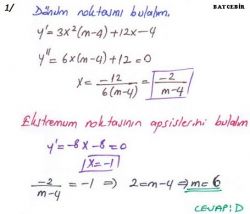 1/ Dönüm noktasını bulalım.
BAYGEBİR
y' = 3x²(m-4)+12x-4
y'' = 6x(m-4)+12=0
x = -12/6(m-4) = -2/m-4
Ekstremum noktasının apsislerini bulalım
y' = -8x-8=0
x=-1
-2/m-4 = -1 ⇒ 2=m-4 ⇒ m=6
CEVAP:D